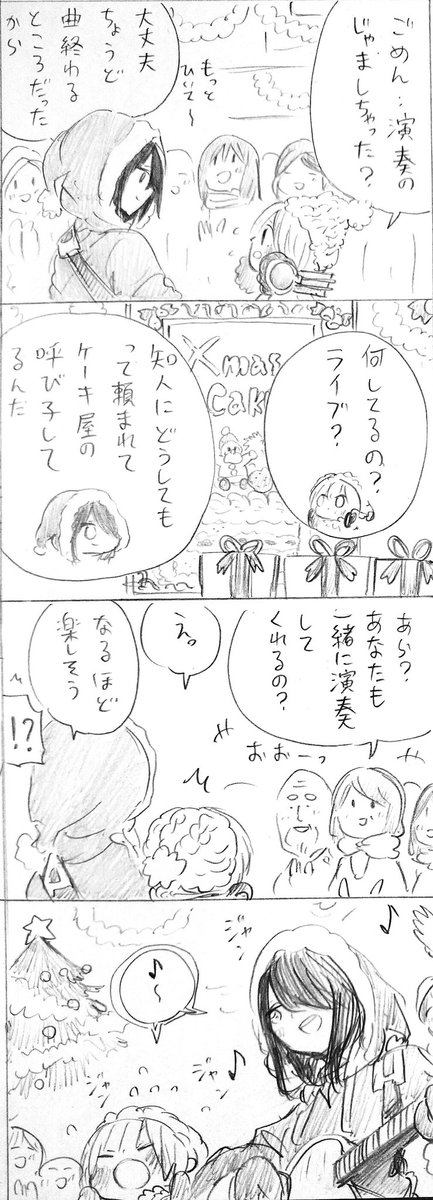 ごめん…演奏の
じゃましちゃった？
もっと
ひいて〜
大丈夫
ちょうど
曲終わる
ところだった
から
何してるの？
ライブ？
Xmas
Cake
知人にどうしても
って頼まれて
ケーキ屋の
呼び子して
るんだ
あら？
あなたも
一緒に演奏
して
くれるの？
おおーっ
えっ
なるほど
楽しそう
!?
♪
ジャン
♪〜
ジャン
ジャン
♪